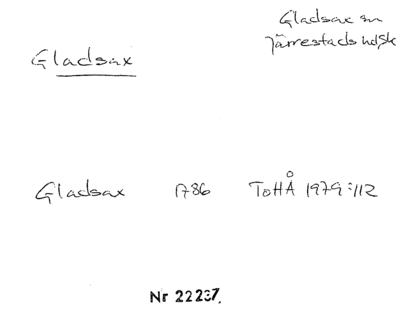 Gladsax
Gladsax sn
Järrestads hd, Sk
Gladsax 1786 ToHÅ 1979:112
Nr 22237.